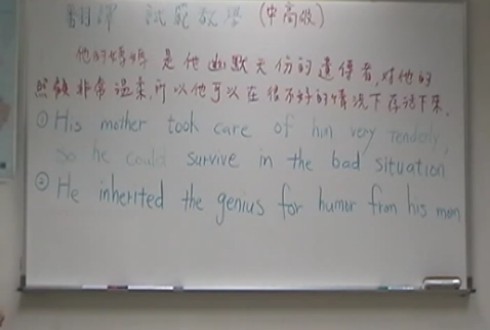 翻譯 試範教學 (中高級)
他的媽媽是他幽默天份的遺傳者,對他的
照顧非常溫柔,所以他可以在很不好的情況下存活下來.
① His mother took care of him very tenderly,
so he could survive in the bad situation
② He inherited the genius for humor from his mom